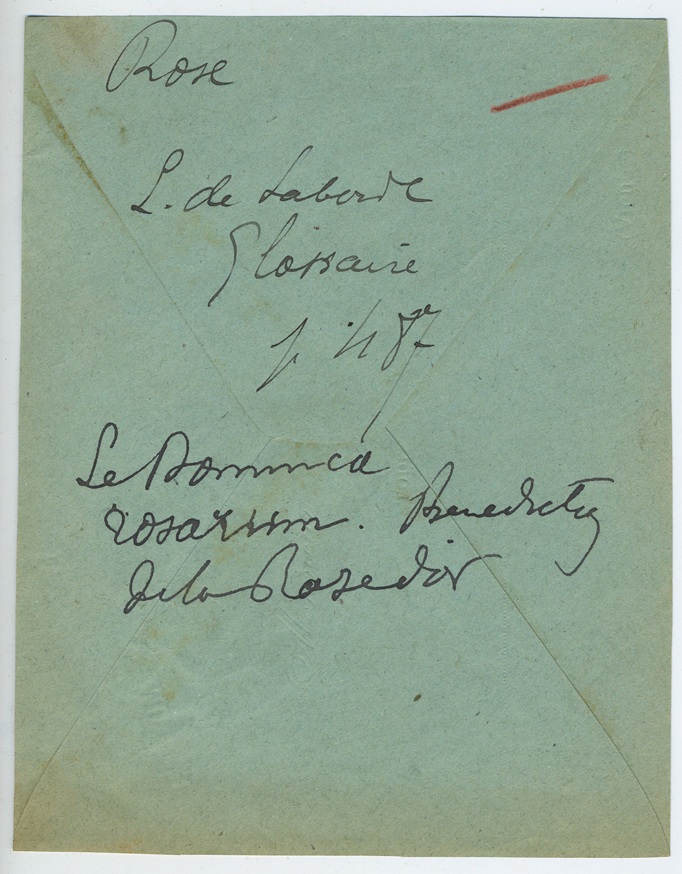 Rose
L. de Laborde
Glossaire
p. 487
Le Dominica
rosarum. Benedictio
de la Rose d'or